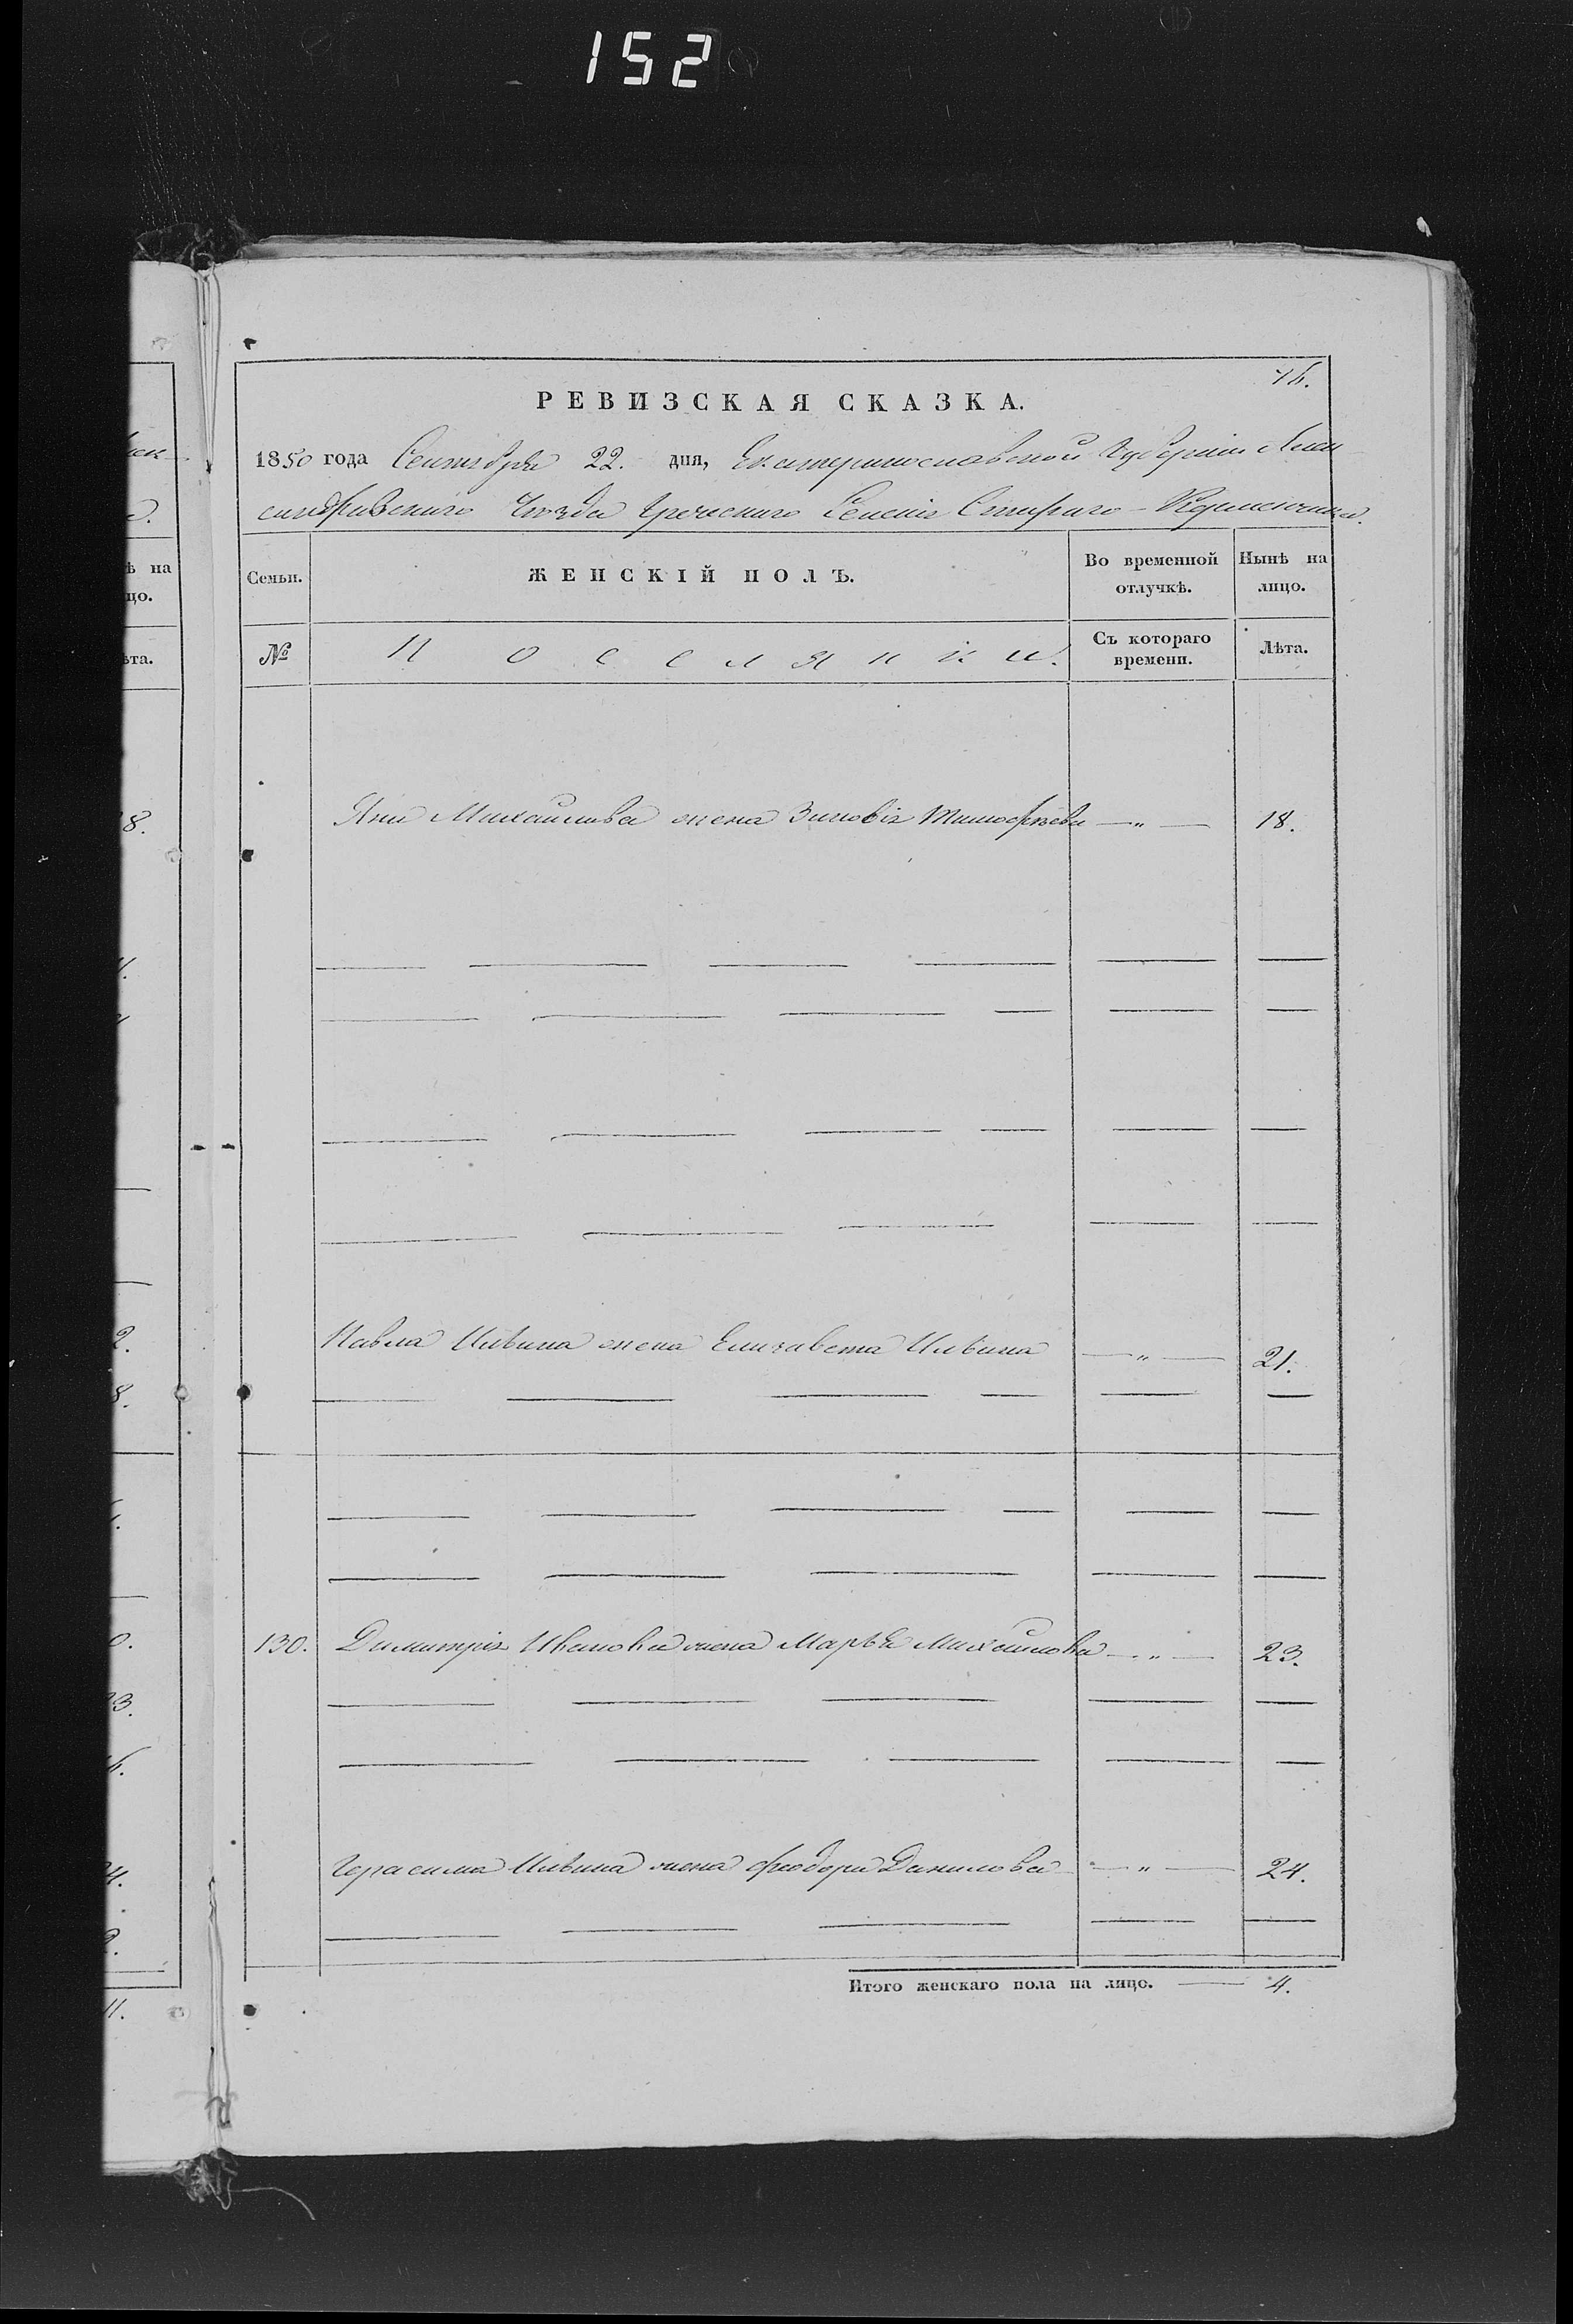 152
76.
РЕВИЗСКАЯ СКАЗКА.
1850 года Сентября 22. дня, Екатеринославской Губерніи Алек
сандровскаго Уѣзда Греческаго Селенія Стараго-Керменчика.
Семьи. ЖЕНСКІЙ ПОЛЪ. Во временной отлучкѣ. Нынѣ на лицо.
№ Поселянки. Съ котораго времени. Лѣта.
Яни Михайлова жена Зиновія Тимофѣева — „ — 18.
Павла Ильина жена Елизавета Ильина — „ — 21.
130. Димитрія Иванова жена Марья Михайлова — „ — 23.
Герасима Ильина жена Феодора Данилова — „ — 24.
Итого женскаго пола на лицо. — 4.